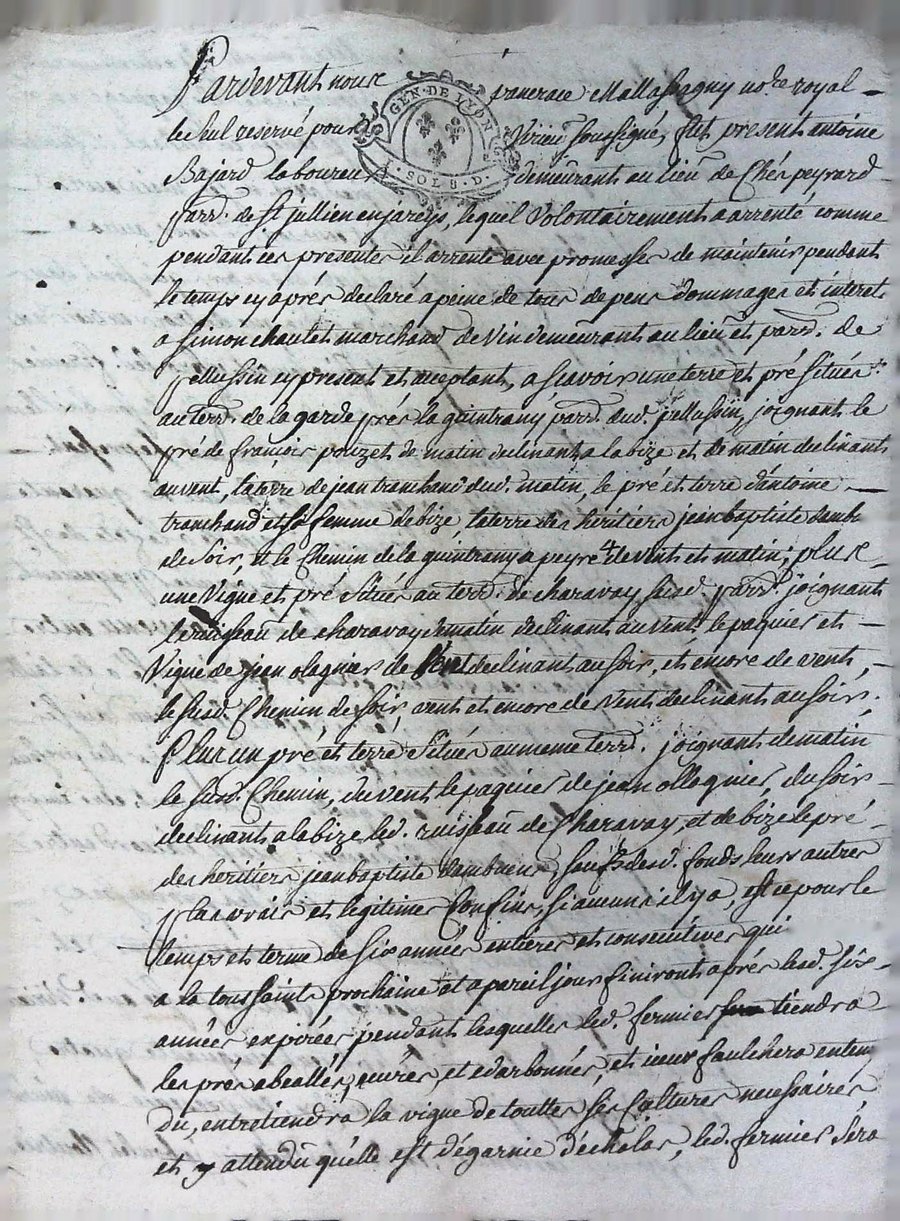 Pardevant nous pancrace Mallassagny no.re royal
GEN · DE LYON
· SOLS · D ·
le seul reservé pour Virieu soussigné, fut present antoine
Bajard laboureur demeurant au lieu de Chés peyrard
parr. de St jullien enjareys, lequel Volontairement a arrenté comme
pendant ces presentes il arrente avec promesses de maintenir pendant
le temps cy aprés declaré a peine de tous depens dommages et interets
a simon chaulet marchand de Vin demeurant au lieu et parr. de
pellussin cy present et aceptant, a scavoir une terre et pré situés
au terr. de la garde prés la guintrany parr. dud. pellussin, joignant le
pré de françois pouzet de matin declinant a la bize et de matin declinant
au vent, la terre de jean tranchand dud. matin, le pré et terre d'antoine
tranchand et sa femme de bize la terre des heritiers jean baptiste
de soir, et le Chemin de la guintrany a de vent et matin; plus
une Vigne et pré situés au terr. de charavay susd. parr. joignant
le ruisseau de charavay de matin declinant au vent, le paquier et
Vigne de jean olagnier de Vent declinant au soir, et encore de vent,
le susd. Chemin de soir, vent et encore de vent declinant au soir.
Plus un pré et terre situés au meme terr. joignant de matin
le susd. Chemin, du vent le paquier de jean ollagnier, du soir
declinant a la bize led. ruisseau de Charavay, et de bize le pré
des heritiers jean baptiste sauf desd. fonds leurs autres
plus vrais et legitimes Confins, si aucuns il y a, est ce pour le
temps et terme de six années entieres et consecutives qui
a la toussaints prochaine et a pareil jour finiront aprés lesd. six
années expirées pendant lesquelles led. fermier tiendra
les prés abeallés, curés et darbonnés, et iceux fauchera en tem
du, entretiendra la vigne de touttes ses Cultures necessaires,
et y attendu qu'elle est dégarnie d'echalas, led. fermier sera